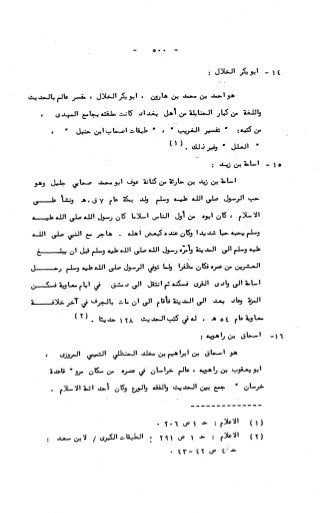 - ٥٠٠ -
١٤- ابو بكر الخلال :
هو احمد بن محمد بن هارون ، ابو بكر الخلال ، مفسر عالم بالحديث
واللغة من كبار الحنابلة من أهل بغداد كانت حلقته بجامع المهدى ،
من كتبه: " تفسير الغريب " ، " طبقات اصحاب ابن حنبل " ،
" العلل " وغير ذلك . (١)
١٥- اسامة بن زيد :
اسامة بن زيد بن حارثة من كنانة عوف ابو محمد صحابي جليل وهو
حب الرسول صلى الله عليه وسلم ولد بمكة عام ٧ ق.هـ ونشأ على
الاسلام ، كان ابوه من أول الناس اسلاما كان رسول الله صلى الله عليه
وسلم يحبه حبا شديدا وكان عنده كبعض اهله . هاجر مع النبي صلى الله
عليه وسلم الى المدينة وأمره رسول الله صلى الله عليه وسلم قبل ان يبلغ
العشرين من عمره فكان مظفرا ولما توفي الرسول صلى الله عليه وسلم رحل
اسامة الى وادى القرى فسكنه ثم انتقل الى دمشق في ايام معاوية فسكن
المزة وعاد بعد الى المدينة فأقام الى ان مات بالجرف في آخر خلافة
معاوية عام ٥٤ هـ . له في كتب الحديث ١٢٨ حديثا . (٢)
١٦- اسحاق بن راهويه :
هو اسحاق بن ابراهيم بن مخلد الحنظلي التميمي المروزى ،
ابو يعقوب بن راهويه ، عالم خراسان في عصره من سكان مرو " قاعدة
خرسان " جمع بين الحديث والفقه والورع وكان أحد ائمة الاسلام .
(١) الاعلام : حـ ١ ص ٢٠٦ .
(٢) الاعلام : حـ ١ ص ٢٩١ ؛ الطبقات الكبرى / لابن سعد :
حـ ٤ ص ٤٢ - ٤٣ .